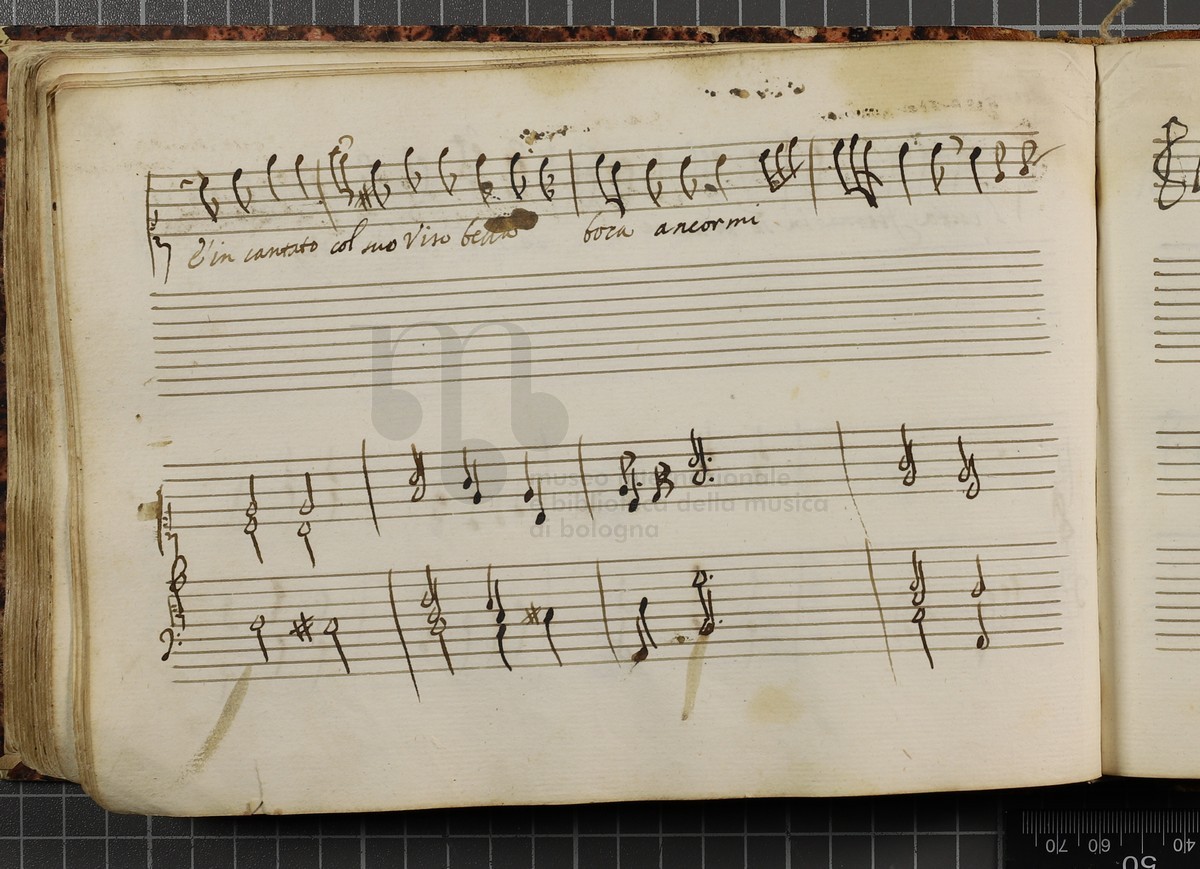 E'in cantato col suo Viso bella boca ancor mi
museo internazionale
e biblioteca della musica
di bologna
70 60 50 40